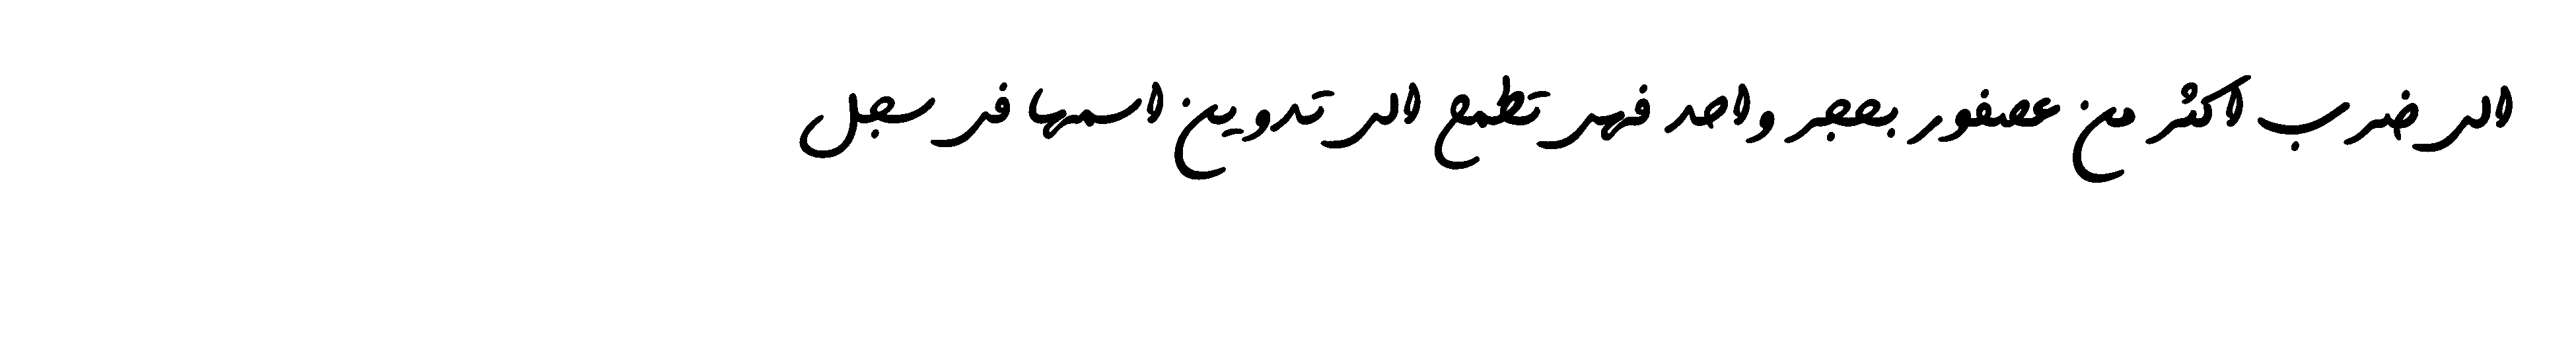 الى ضرب اكثر من عصفور بحجر واحد فهى تطمع الى تدوين اسمها فى سجل